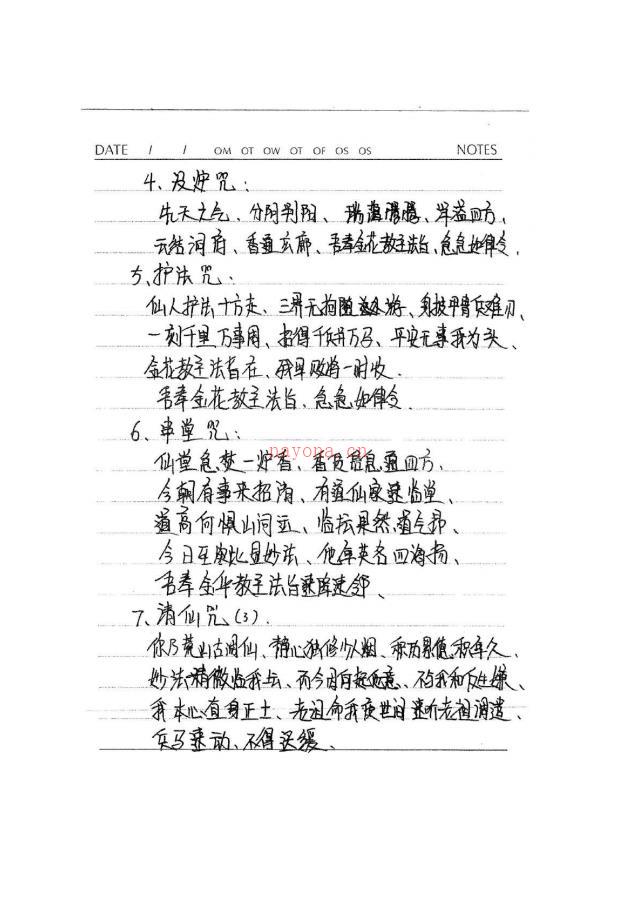 DATE / / OM OT OW OT OF OS OS NOTES
4、没炉咒：
先天之气、分阴判阳、瑞蔼腾腾、洋溢四方、
云结洞府、香通玄廊、吾奉金花教主法旨、急急如律令、
5、护法咒：
仙人护法十方走、三界无拘随游、身披甲胄兵难刃、
一刻千里万事周、招得千兵万马、平安无事我为头、
金花教主法旨在、败将一时收.
吾奉金花教主法旨、急急如律令.
6、串堂咒：
仙堂急焚一炉香、香急通四方、
payona.cn
今朝有事来招请、有道仙家速临堂、
道高何惧山河远、临坛果然道气昂、
今日至此显妙法、他年英名四海扬、
吾奉金华教主法旨速降
7、请仙咒(3).
你乃荒山古洞仙、静心独修少人烟、积万果德积年久、
妙法稍微、而今、
我本心直身正士、老祖命我度世间速听老祖调遣、
兵马速动、不得迟缓、